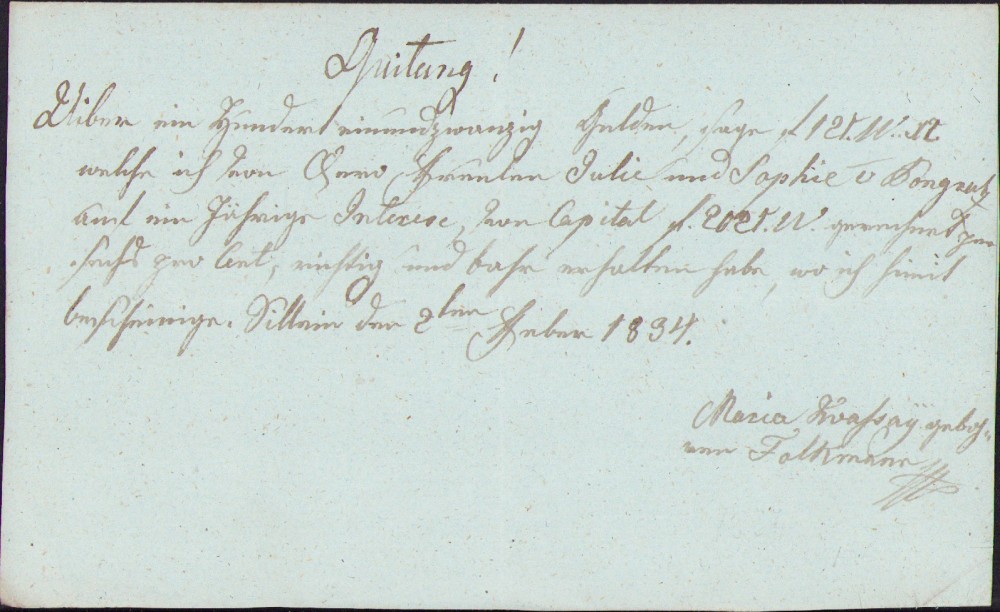 Quitung!
Uiber ein Hundert einundzwanzig Gulden, sage f 121. W. W.
welche ich von Ihero Freulen Julie und Sophie v Pongratz
auf ein Jährige Interese, von Capital f. 2021. W. gerechnet per
sechs pro Cent, richtig und bahr erhalten habe, wo ich himit
bescheinige. Sillein den 2ten Feber 1834.
Maria Kvassay geboh-
ren Folkmann